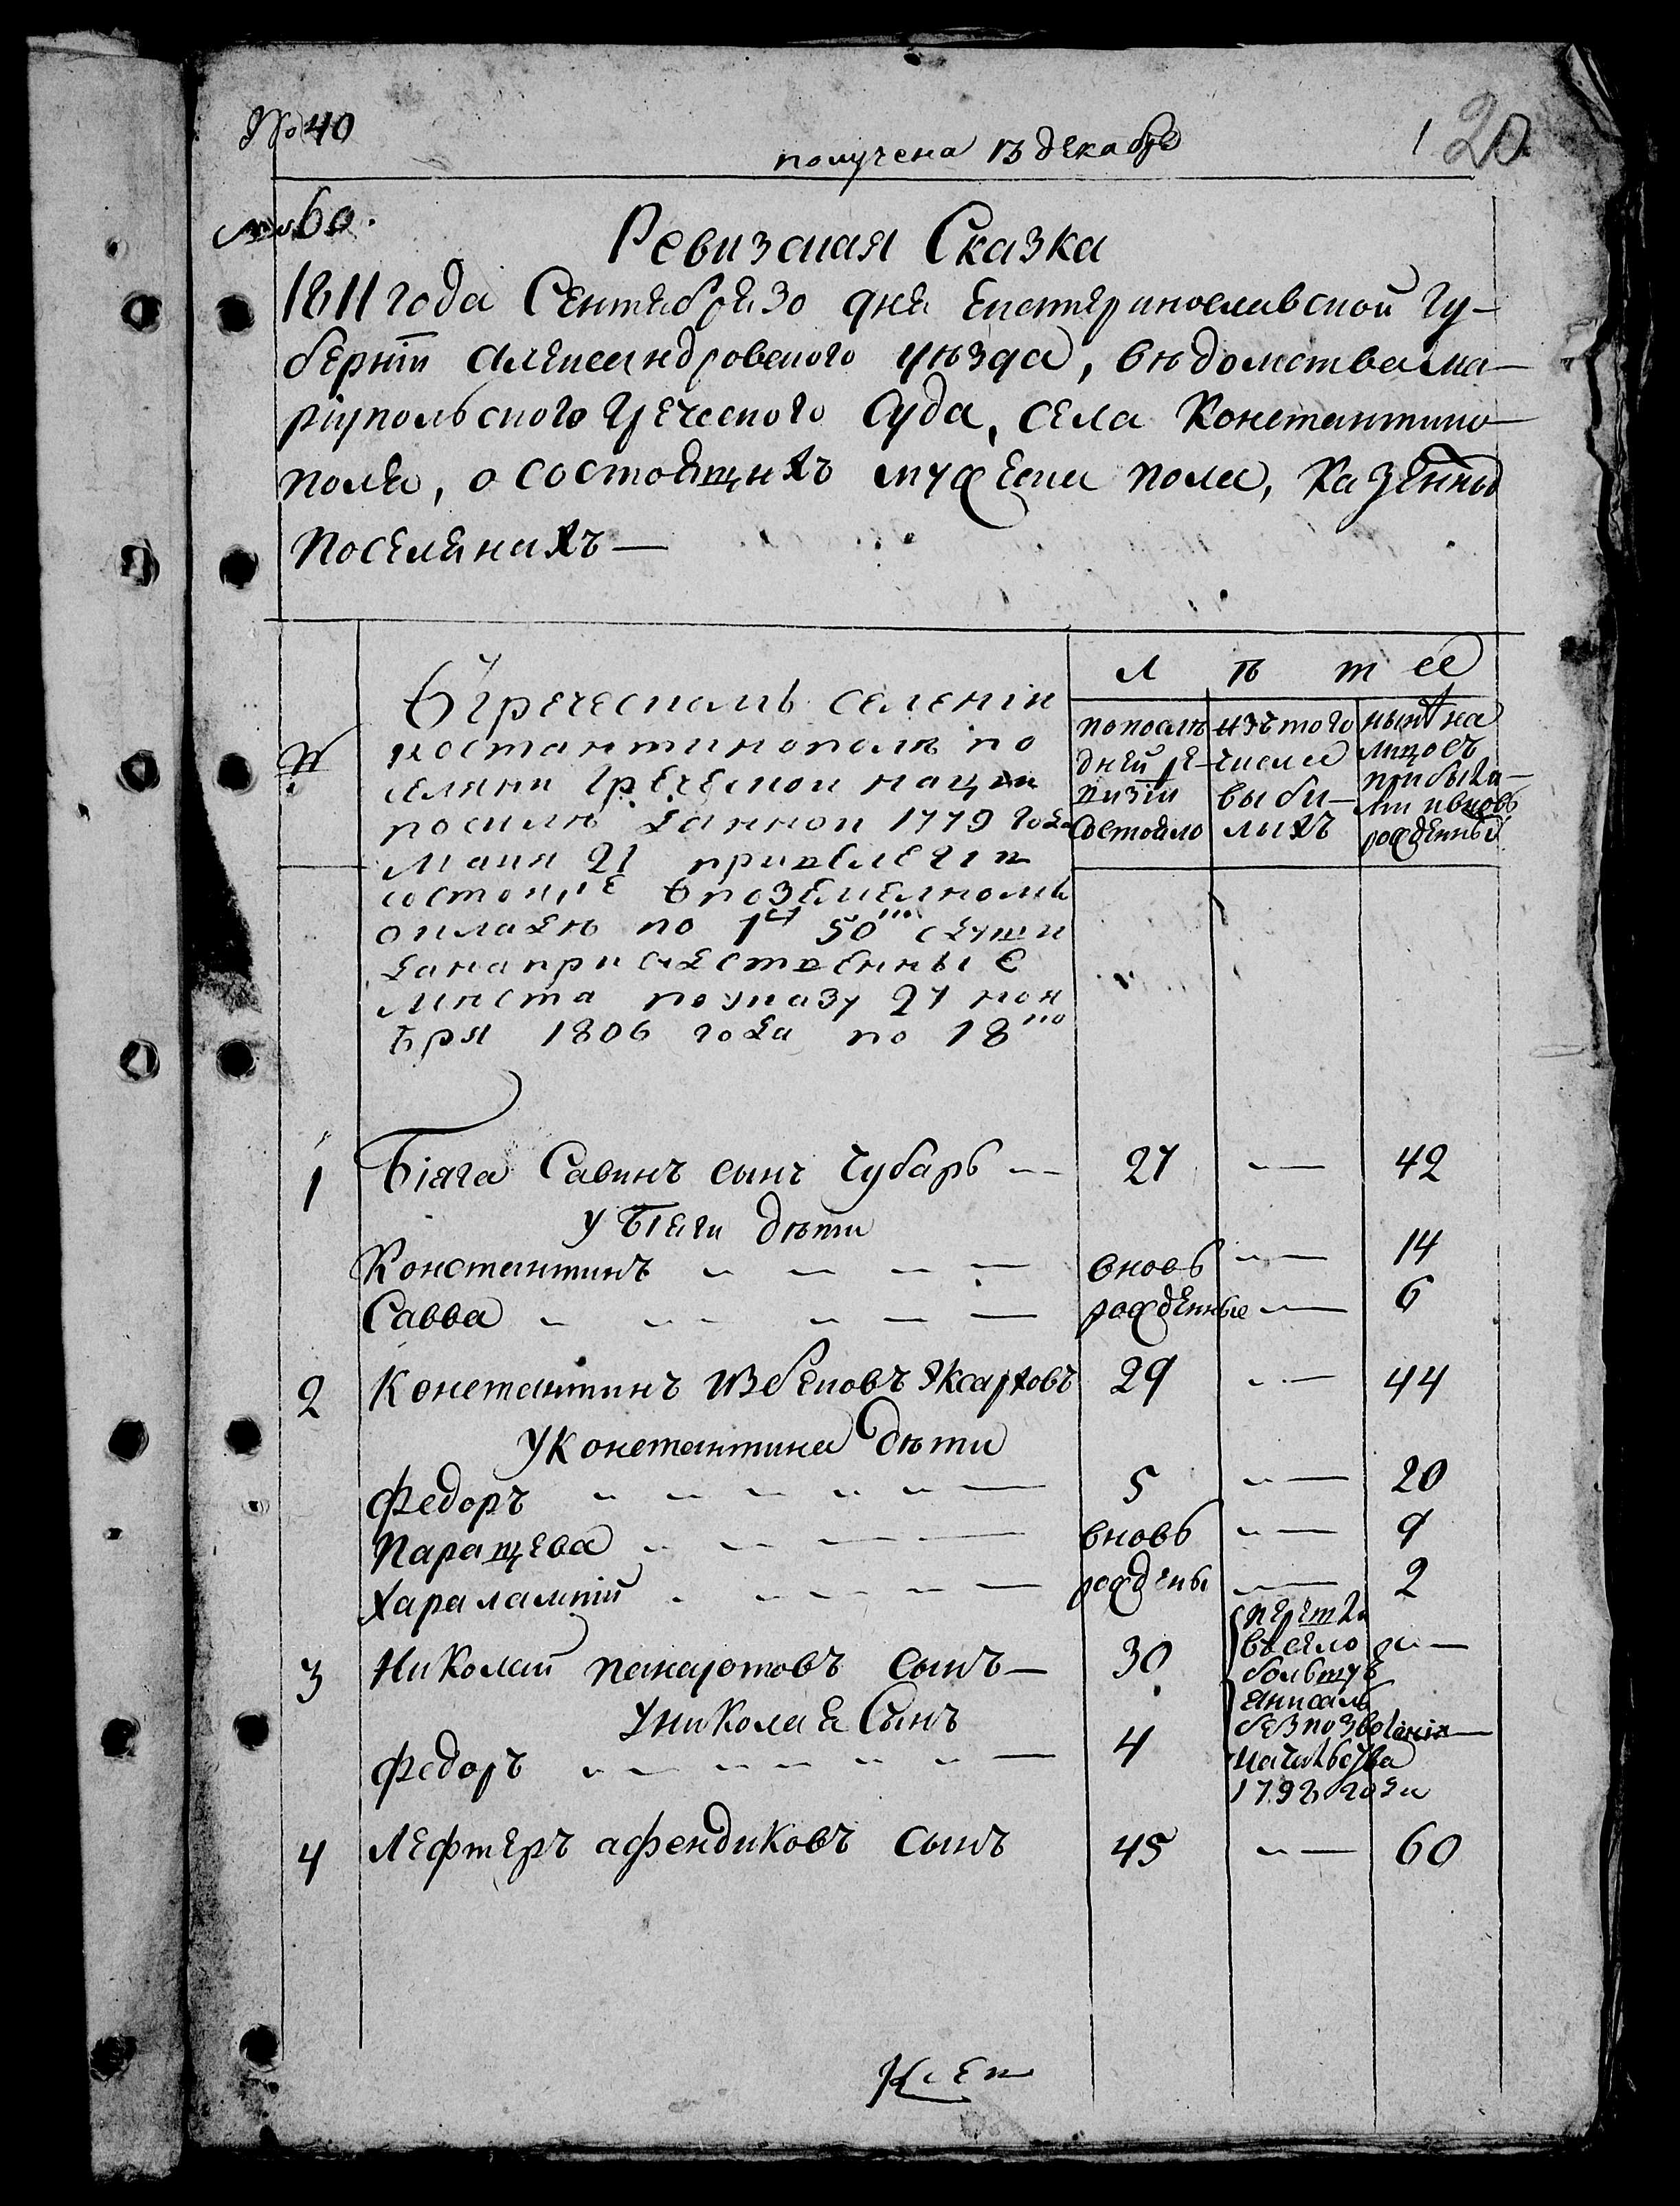 № 40
получена 13 декабр
1 20
№ 60.
Ревизская Сказка
1811 года Сентября 30 дня Екатеринославской Гу-
берніи Александровского уѣзда, вѣдомства Ма-
ріупольского Греческого Суда, села Константино-
поля, о состоящихъ мужеска пола, Казенны
Поселянахъ —
№
В греческомъ селеніи
Костантинополѣ по
селяни Греческои нацыи
посилѣ данной 1779 года
Маия 21 привелегіи
состоящіе в поземелномъ
окладѣ по 1 50 с души
данапри
Мѣста по указу 27 ноя
бря 1806 года по 18
Л ѣ т а
по послѣ
дней ре-
визіи
Состояло
изъ того
числа
выбы-
лыхъ
нынѣ на
лицо съ
прибылы-
ми и вновь
рожденный
1 Біяга Савинъ сынъ Чубарь -- 27 — 42
у Біяги дѣти
Константинъ — вновь — 14
Савва — рожденные — 6
2 Константинъ Ексарховъ 29 — 44
У Константина дѣти
Федоръ — 5 — 20
Паращева — вновь — 9
Харалампій — рождены — 2
3 Николай Панаіотовъ Сынъ — 30
въ село
большую
Янисаль
без позволенія
началства
179 года
У Николая Сынъ
Федоръ — 4 —
4 Лефтеръ афендиковъ Сынъ 45 — 60